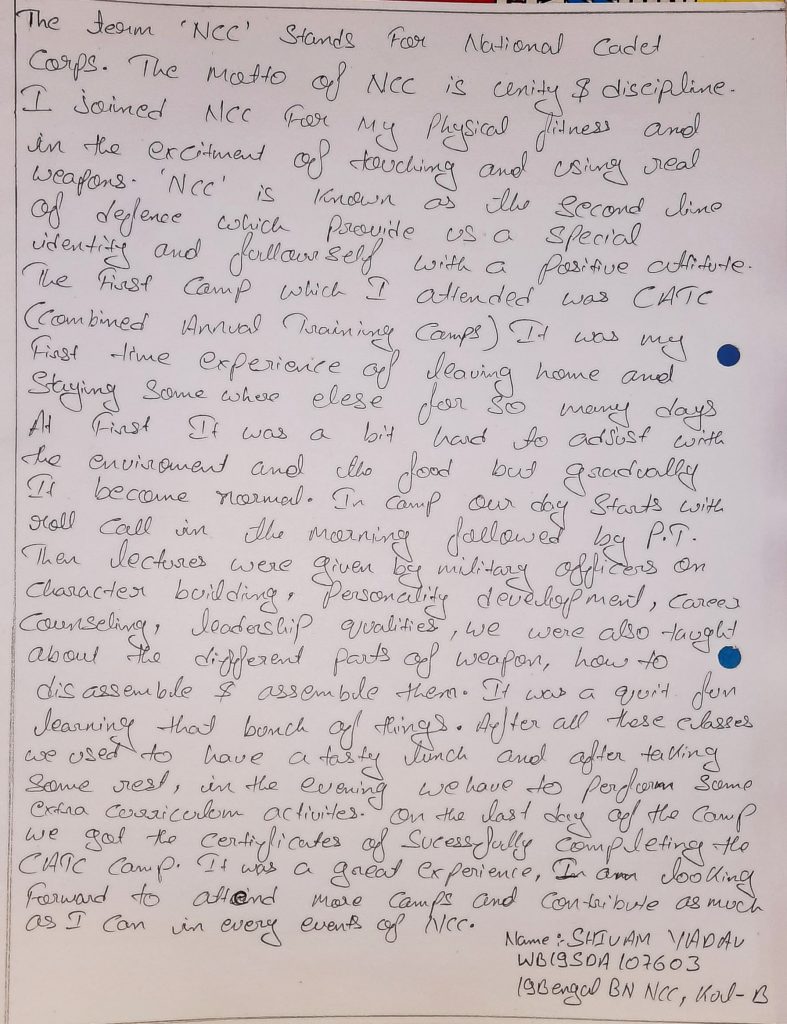 The term 'NCC' Stands For National Cadet
Corps. The motto of NCC is unity & discipline.
I joined NCC For my Physical fitness and
in the excitment of touching and using real
weapons. 'NCC' is Known as the Second line
of defence which provide us a Special
identity and follow self with a Positive attitute.
The First Camp which I attended was CATC
(Combined Annual Training Camps) It was my
First time experience of leaving home and
Staying Some where elese for so many days
At First It was a bit hard to adjust with
the enviroment and the food but gradually
It become normal. In camp our day Starts with
roll Call in the morning followed by P.T.
Then lectures were given by military officers on
Character building, Personality development, career
Counseling, leadership qualities, we were also taught
about the different parts of weapon, how to
dis assemble & assemble them. It was a quit fun
learning that bunch of things. After all these classes
we used to have a tasty lunch and after taking
Some rest, in the evening we have to perform Some
extra curriculum activites. On the last day of the Camp
we got the certificates of Sucessfully Completing the
CATC Camp. It was a great experience, In am looking
Forward to attend more Camps and Contribute as much
as I Can in every events of NCC.
Name :- SHIVAM YADAV
WB19SDA107603
19 Bengal BN NCC, Kol-B